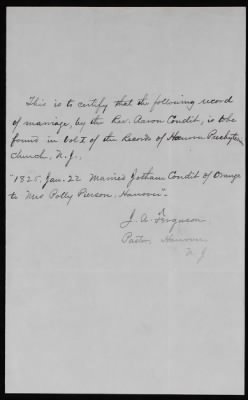 This is to certify that the following record
of marriage, by the Rev. Aaron Condit, is to be
found in Vol I of the Records of Hanover Presbyterian
church, N.J.,
"1825, Jan. 22 Married Jotham Condit of Orange
to Mrs Polly Pierson, Hanover".
J. A. Ferguson
Pastor, Hanover
N J